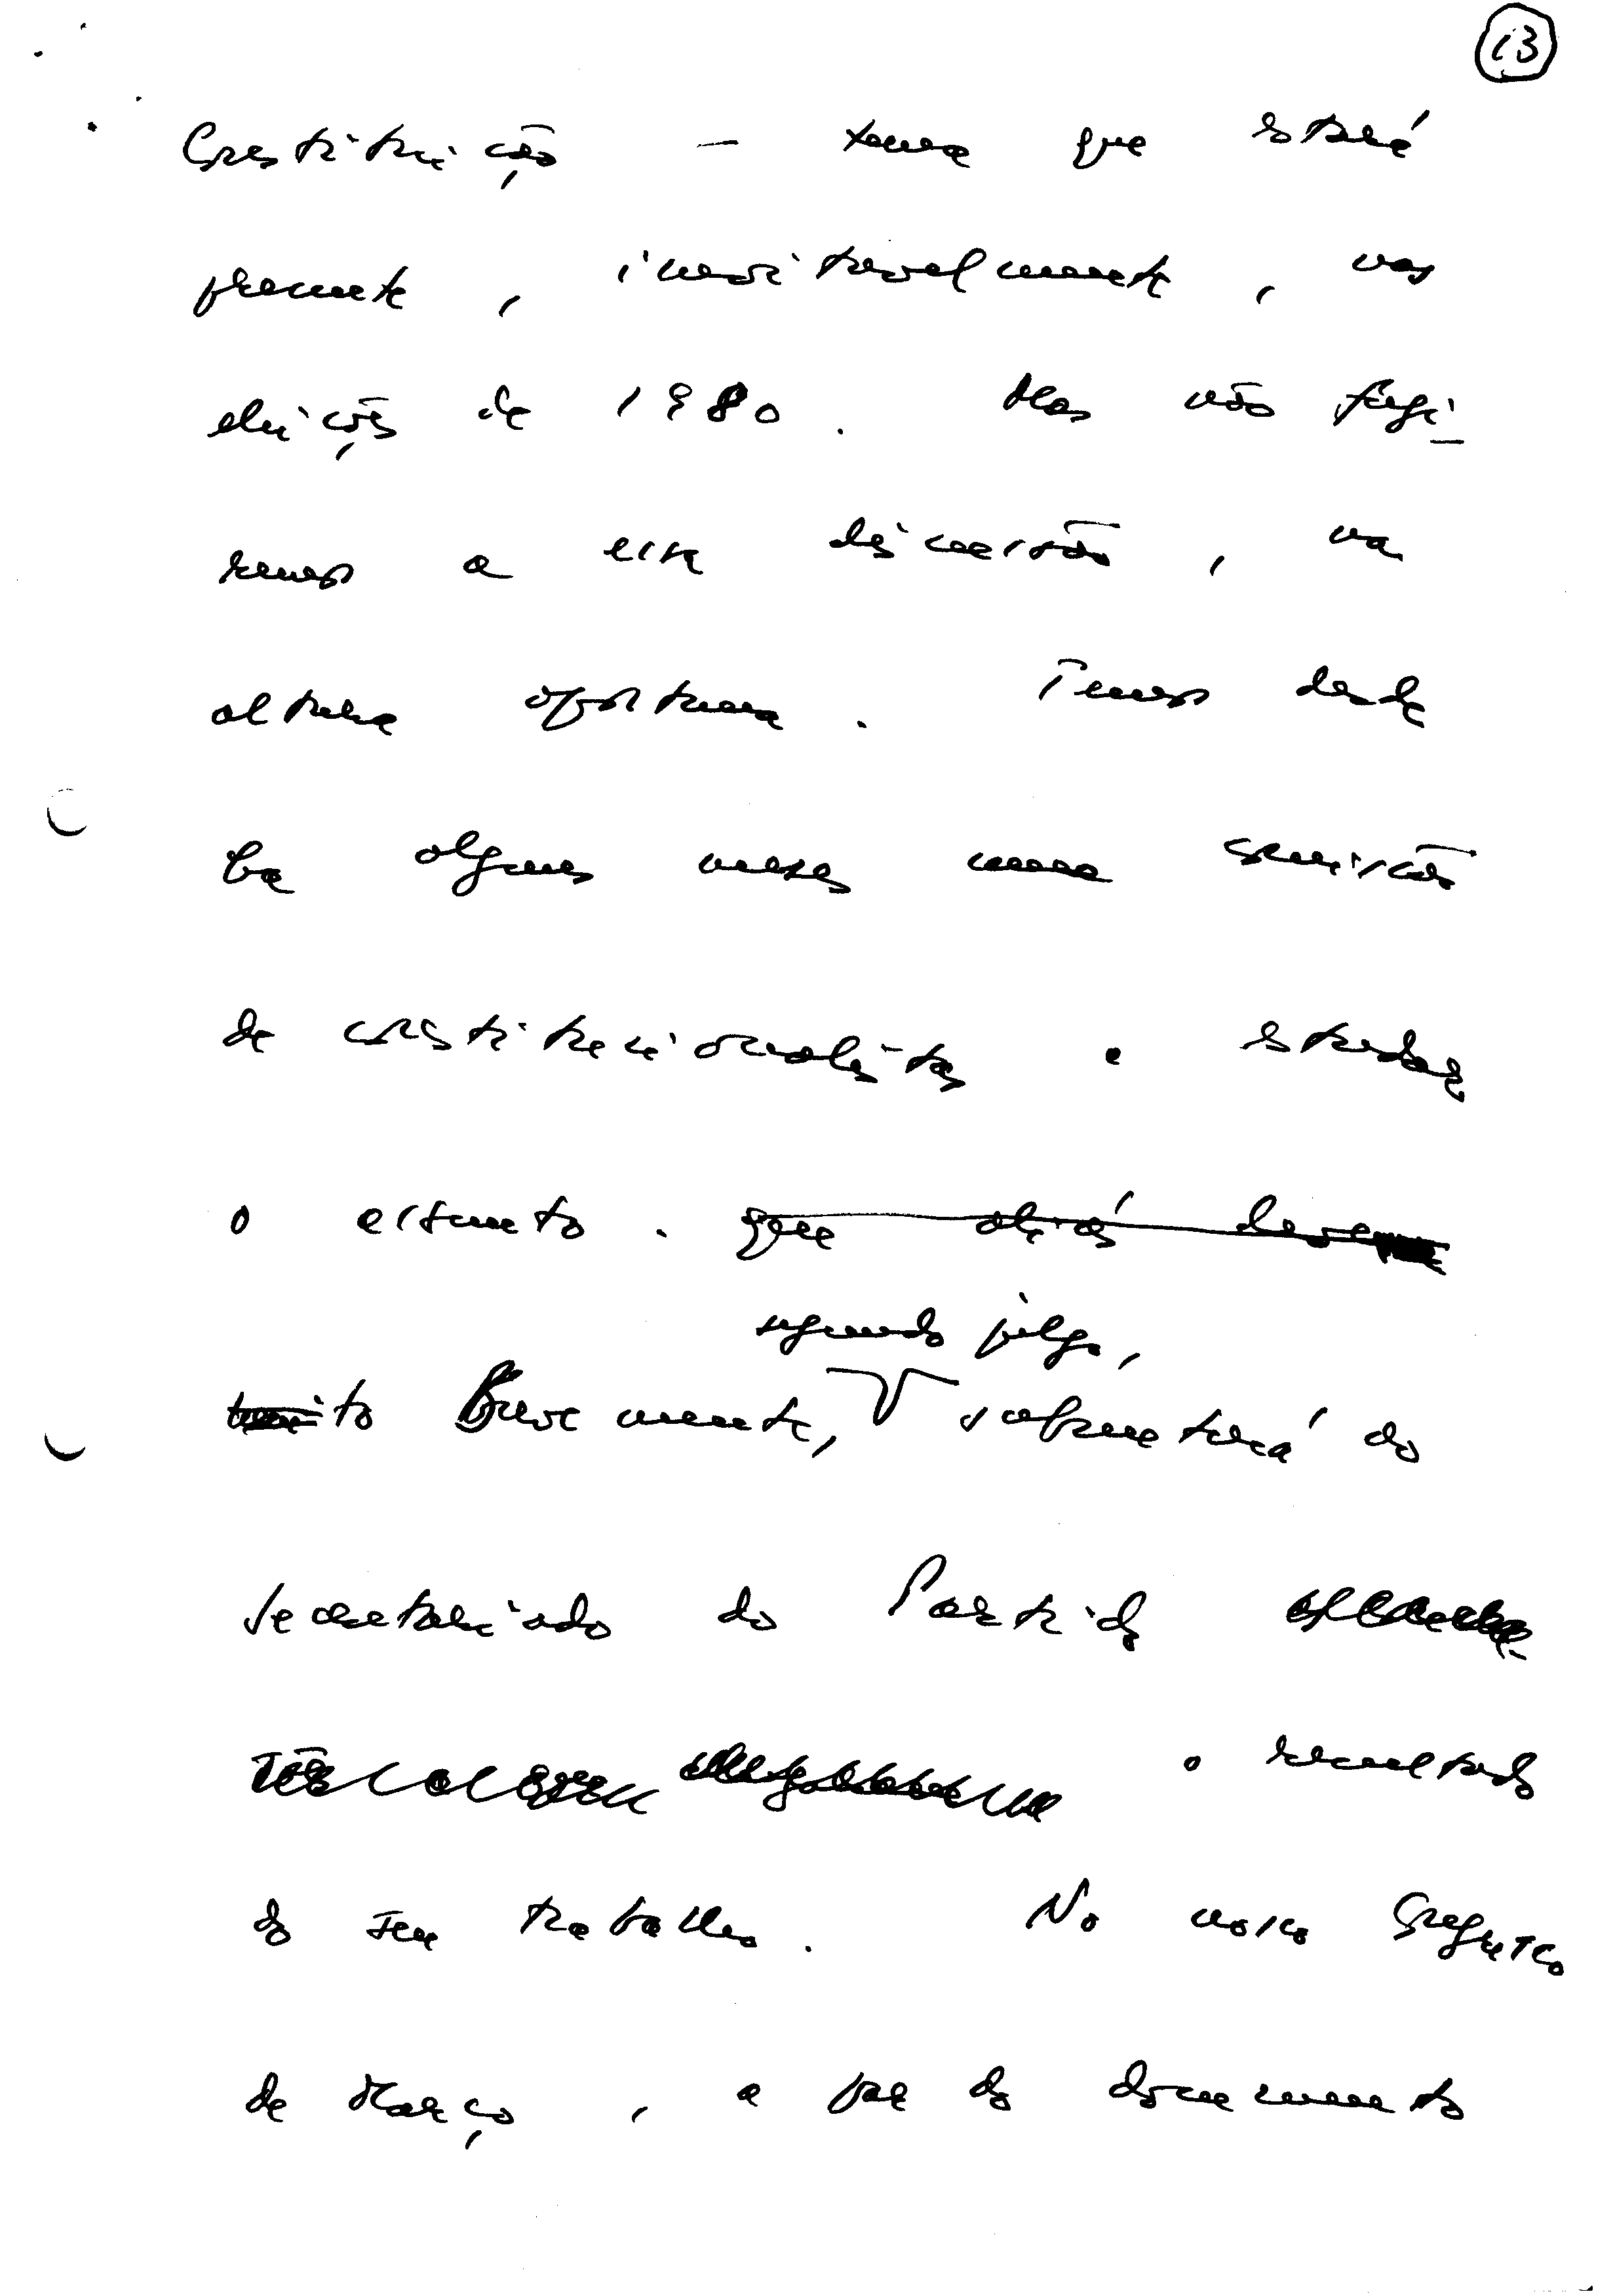 13
Constituição – tema que estará
presente, inevitavelmente, nas
eleições de 1980. Mas não fugi-
remos a essa discussão, na
altura oportuna. Temos desde
há alguns meses uma comissão
de constitucionalistas a estudar
o assunto. que aliás
segundo julgo,
muito Brevemente, submeterá ao
Secretariado do Partido
o resultado
do seu trabalho. No nosso Congresso
de Março, a par do documento